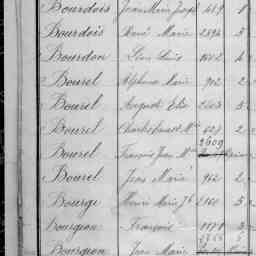 Bourdois Jean Marie Joseph 469 1
Bourdois René Marie 2394 5
Bourdon Léon Louis 1602 4
Bourel Alphonse Marie 902 2
Bourel Auguste Elie 2403 5
Bourel 627 2
2609
Bourel François Jean Mie
Bourel Jean Marie 962 2
Bourge Henri Marie Jh 2160 5
Bourgeon François 1171 3
Bourgeon Jean Marie